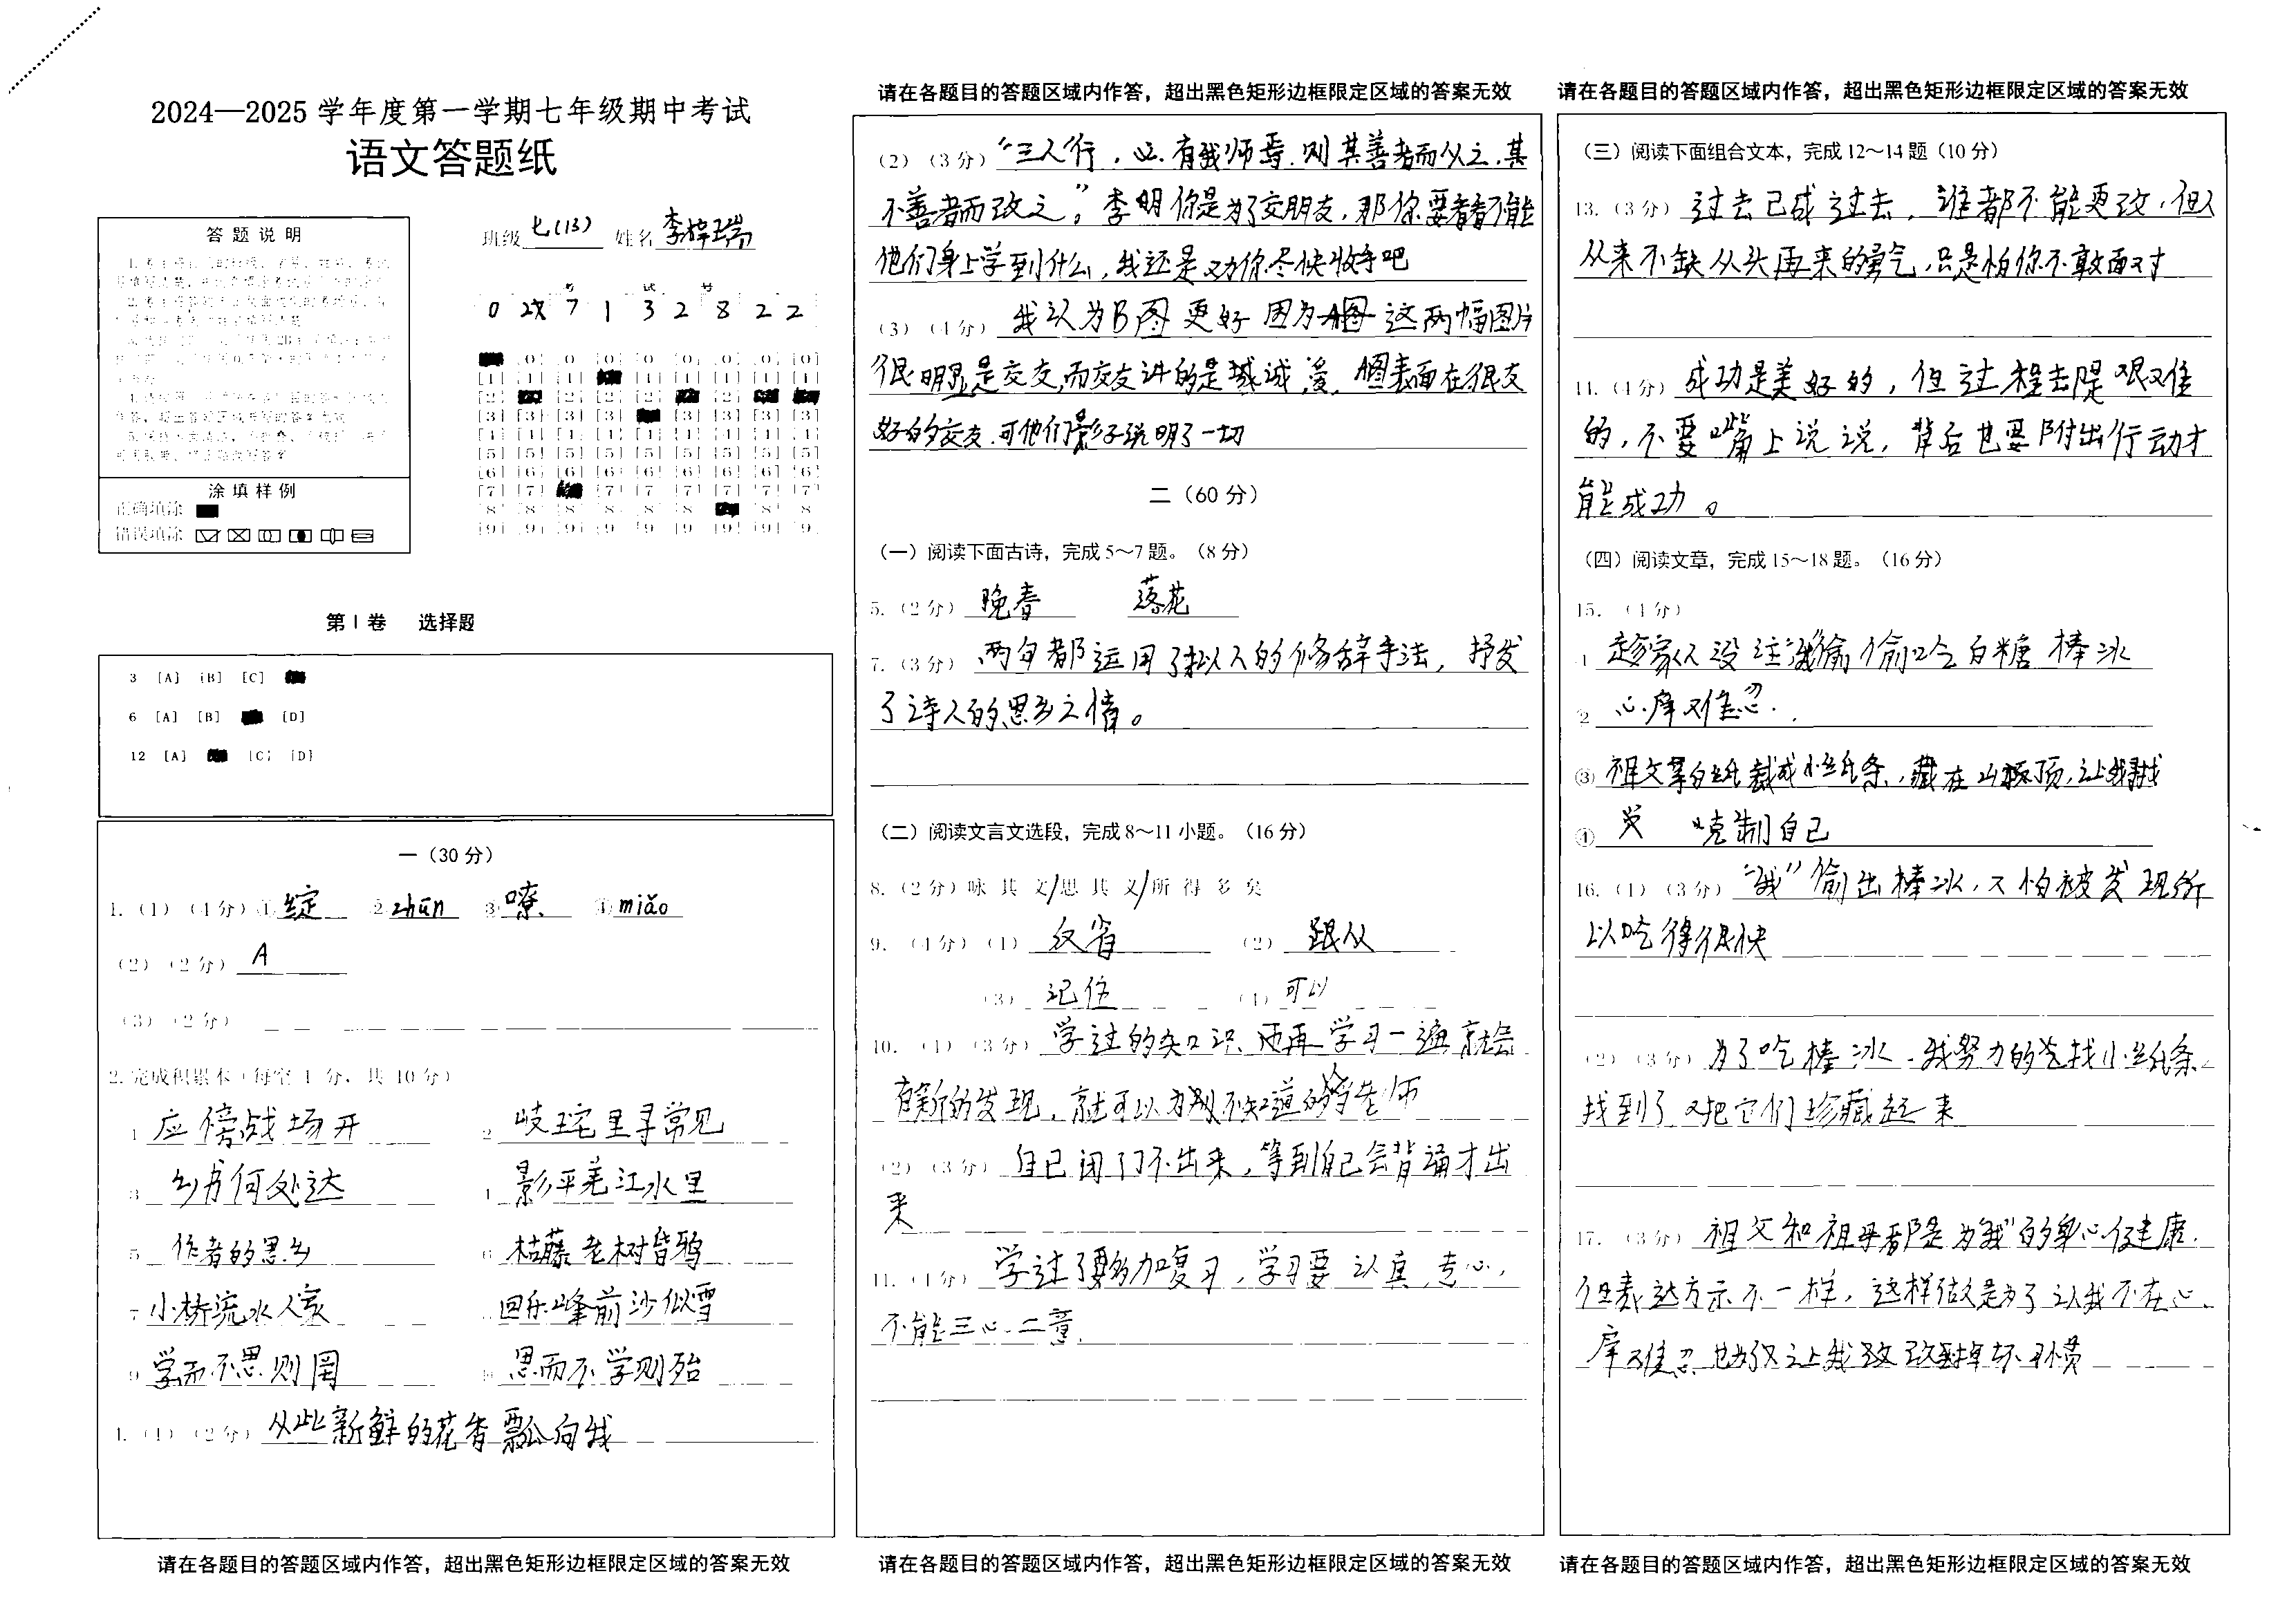 2024—2025 学年度第一学期七年级期中考试
语文答题纸
答 题 说 明
班级 七(13) 姓名 李梓瑞
考 试 号
0 2 7 1 3 2 8 2 2
涂 填 样 例
正确填涂
错误填涂
第 I 卷 选择题
3 [A] [B] [C]
6 [A] [B] [D]
12 [A] [C] [D]
一（30 分）
1.（1）（4分）① 绽 ② zhūn ③ 嘹 ④ miǎo
（2）（2分） A
（3）（2分）
2.完成积累本（每空 1 分，共 10 分）
1 应傍战场开 2 岐王宅里寻常见
3 乡书何处达 4 影平羌江水里
5 作者的思乡 6 枯藤老树昏鸦
7 小桥流水人家 回乐峰前沙似雪
9 学而不思则罔 10 思而不学则殆
4.（1）（2分） 从此新鲜的花香飘向我
请在各题目的答题区域内作答，超出黑色矩形边框限定区域的答案无效
请在各题目的答题区域内作答，超出黑色矩形边框限定区域的答案无效
（2）（3分） “三人行，必有我师焉，则其善者而从之，其
不善者而改之”。李明你是为了交朋友，那你要看看不能
他们身上学到什么，我还是劝你尽快收手吧
（3）（4分） 我认为B图更好 因为 这两幅图片
很明显是交友,而交友讲的是 诚, 图表面在很友
好的交友,可他们影子说明了一切
二（60 分）
（一）阅读下面古诗，完成 5～7 题。（8 分）
5.（2分） 晚春 落花
7.（3分） 两句都运用了拟人的修辞手法，抒发
了诗人的思乡之情。
（二）阅读文言文选段，完成 8～11 小题。（16 分）
8.（2分）咏 其 文/思 其 义/所 得 多 矣
9.（4分）（1） 反省 （2） 跟从
（3） 记住 （4） 可以
10.（1）（3分） 学过的知识,而再学习一遍就会
有新的发现，就可以为 不知道的 当老师
（2）（3分） 自己闭门不出来，等到自己会背诵才出
来
11.（4分） 学过了要多加复习，学习要认真,专心，
不能三心二意.
请在各题目的答题区域内作答，超出黑色矩形边框限定区域的答案无效
请在各题目的答题区域内作答，超出黑色矩形边框限定区域的答案无效
（三）阅读下面组合文本，完成 12～14 题（10 分）
13.（3分） 过去已成过去，谁都不能更改，但人
从来不缺从头再来的勇气,只是怕你不敢面对
14.（4分） 成功是美好的，但过程却是艰难
的，不要嘴上说说，背后也要附出行动才
能成功。
（四）阅读文章，完成 15～18 题。（16 分）
15.（4分）
1 趁家人没注 偷偷吃白糖棒冰
2 心痒难忍.
③ 祖父拿白纸裁成小纸条,藏在 顶,让我
④ 克制自己
16.（1）（3分） “我”偷出棒冰,又怕被发现所
以吃得很快
（2）（3分） 为了吃棒冰,我努力的去找小纸条,
找到了又把它们珍藏起来
17.（3分） 祖父和祖母都是为“我”的身心健康.
但表达方示不一样，这样做是为了让我不在心
痒难忍 也为了让我 改掉坏习惯
请在各题目的答题区域内作答，超出黑色矩形边框限定区域的答案无效